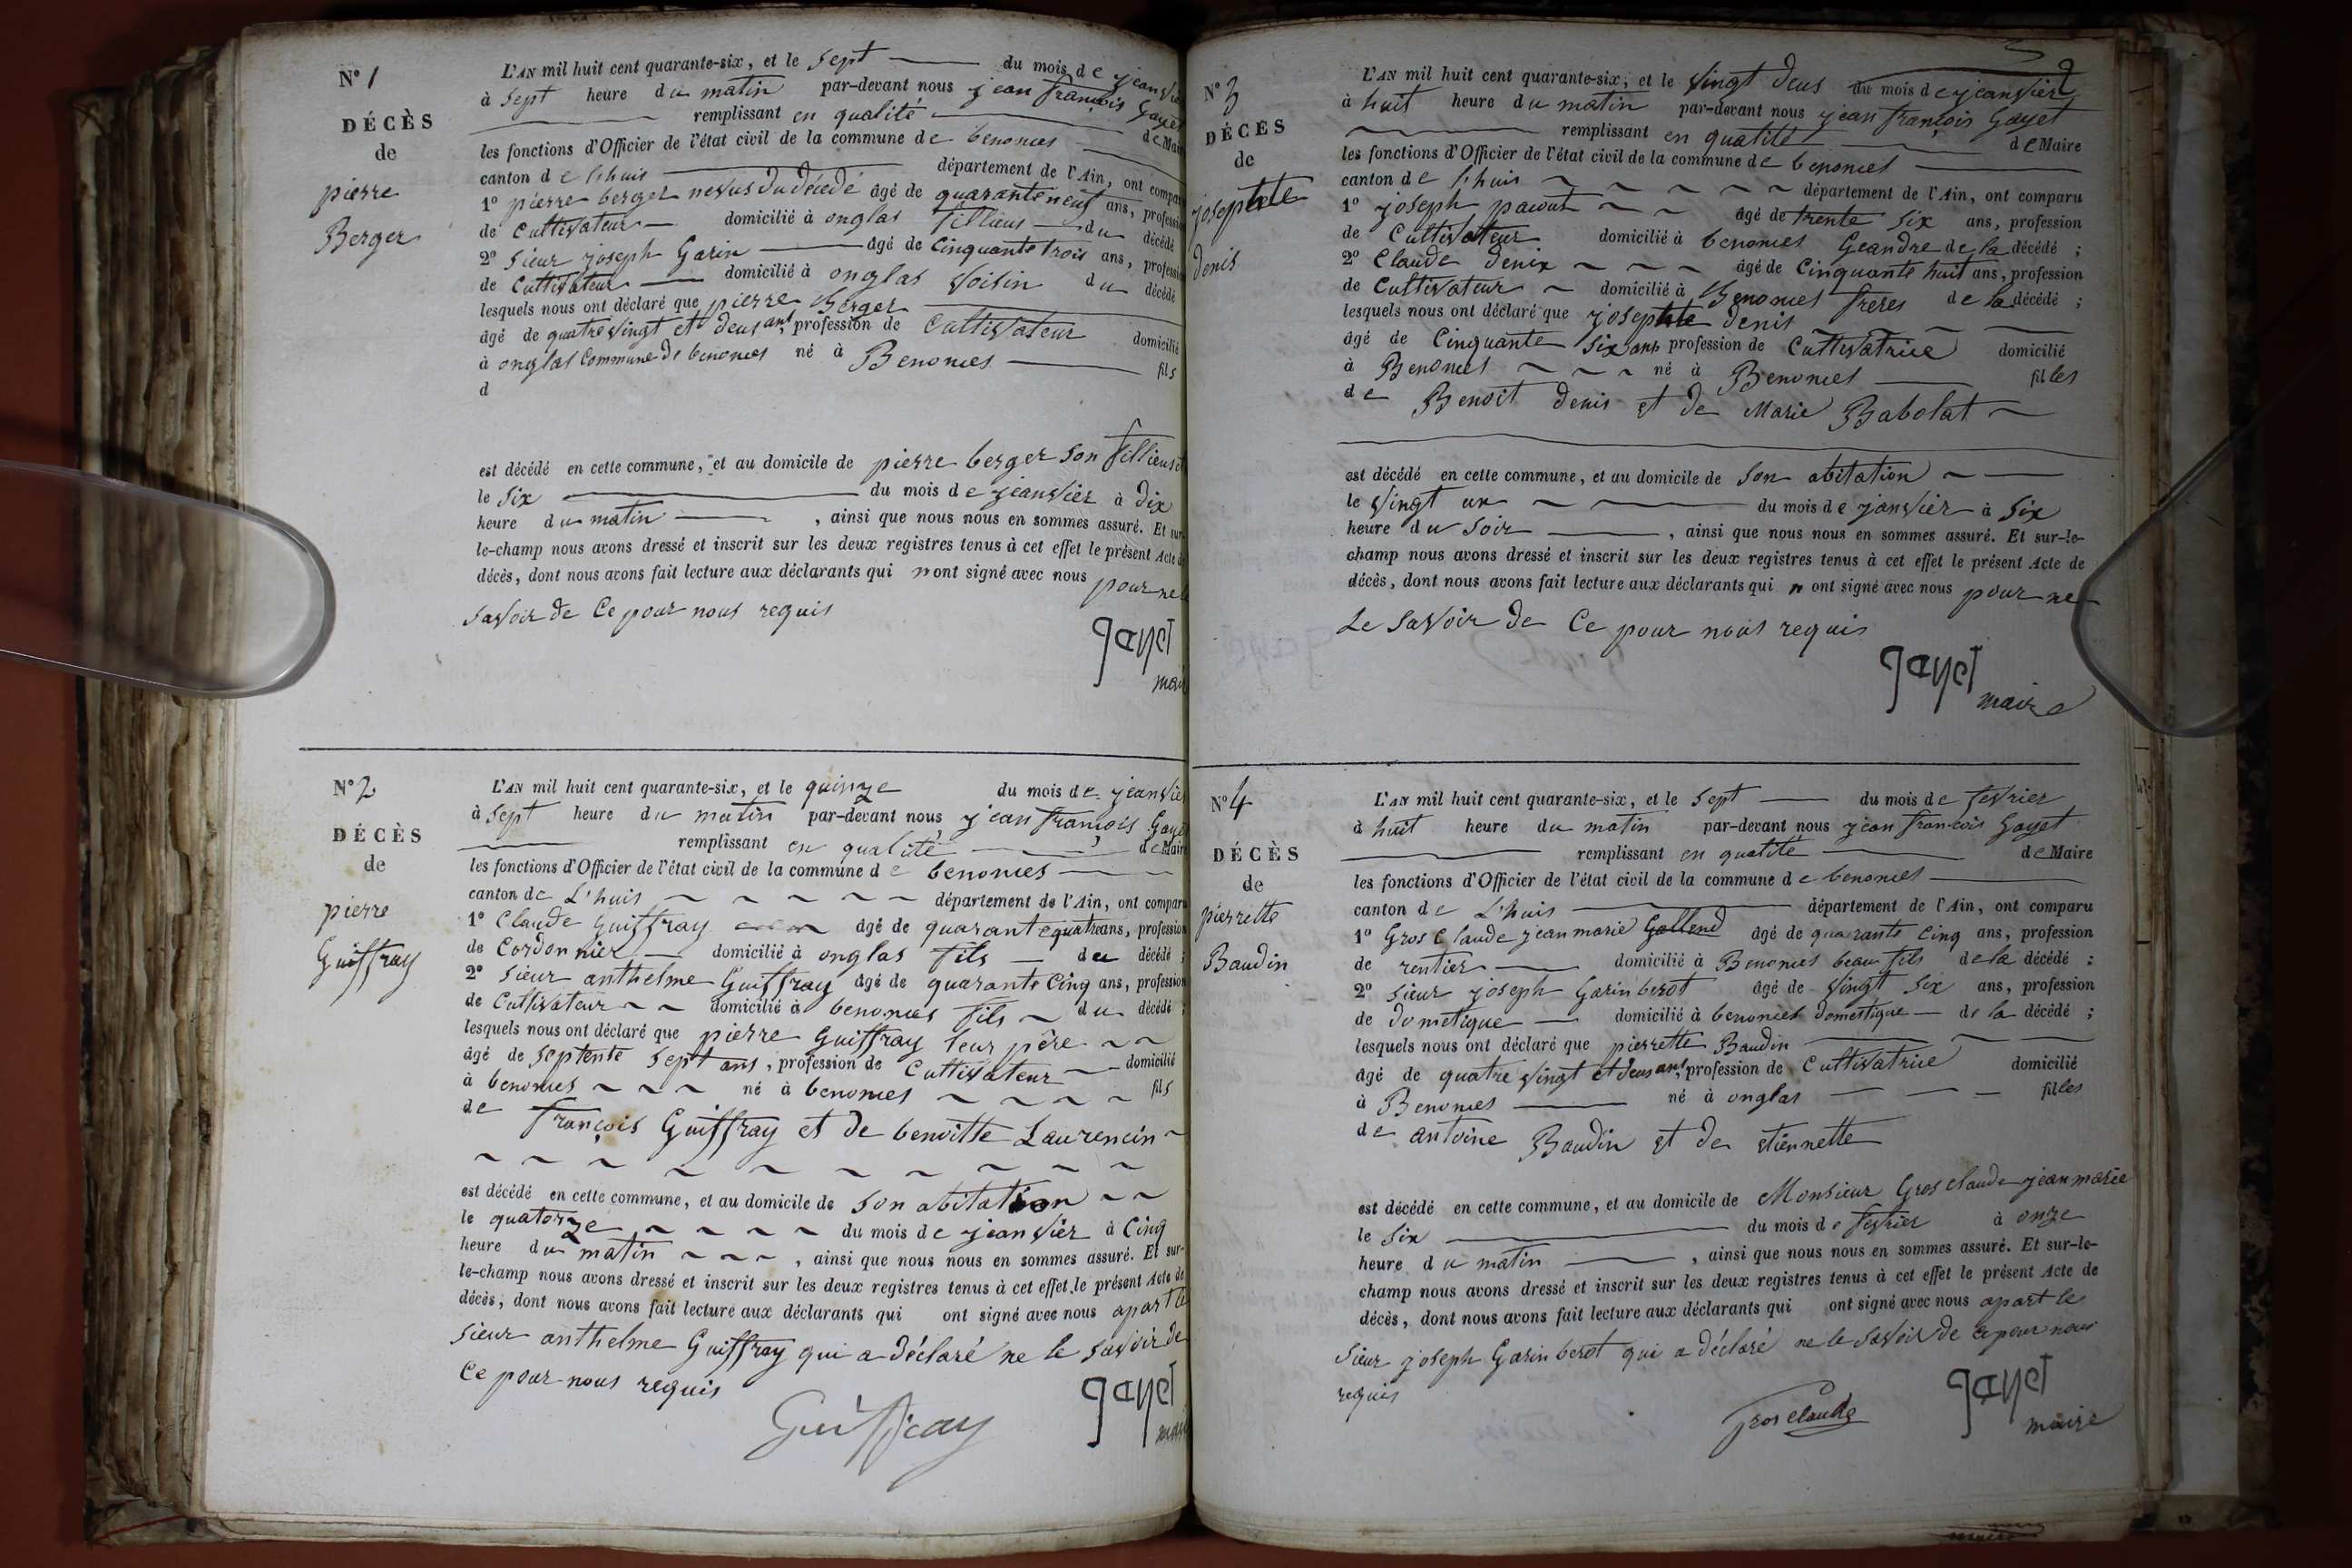 N° 1
DÉCÈS
de
pierre
Berger
L'AN mil huit cent quarante-six, et le sept du mois de jeanvie
à sept heure du matin par-devant nous jean françois Gayet
remplissant en qualité de Mai
les fonctions d'Officier de l'état civil de la commune de benonces
canton de l'huis département de l'Ain, ont compa
1° pierre berger nevus du décédé âgé de quaranteneuf ans, professi
de Cultivateur domicilié à onglas fillieus du décédé
2° sieur joseph Garin âgé de Cinquante trois ans, professi
de Cultivateur domicilié à onglas voisin du décédé
lesquels nous ont déclaré que pierre Berger
âgé de quatre vingt et deus ans, profession de Cultivateur domicilié
à onglas Commune de benonces né à Benonces fils
d
est décédé en cette commune, et au domicile de pierre berger son fillieus
le six du mois de jeanvier à dix
heure du matin , ainsi que nous nous en sommes assuré. Et sur-
le-champ nous avons dressé et inscrit sur les deux registres tenus à cet effet le présent Acte d
décès, dont nous avons fait lecture aux déclarants qui n ont signé avec nous pour ne le
savoir de Ce pour nous requis
gayet
mai
N° 2
DÉCÈS
de
pierre
Guiffray
L'AN mil huit cent quarante-six, et le quinze du mois de jeanvie
à sept heure du matin par-devant nous jean françois Gaye
remplissant en qualité de Maire
les fonctions d'Officier de l'état civil de la commune de benonces
canton de L'huis département de l'Ain, ont comparu
1° Claude Guiffray âgé de quarantequatre ans, profession
de Cordonnier domicilié à onglas fils du décédé ;
2° sieur anthelme Guiffray âgé de quarante Cinq ans, profession
de Cultivateur domicilié à benonces fils du décédé ;
lesquels nous ont déclaré que pierre Guiffray leur père
âgé de septente sept ans, profession de Cultivateur domicilié
à benonces né à benonces fils
de françois Guiffray et de benoitte Laurencin
est décédé en cette commune, et au domicile de son abitation
le quatorze du mois de jeanvier à Cinq
heure du matin , ainsi que nous nous en sommes assuré. Et sur-
le-champ nous avons dressé et inscrit sur les deux registres tenus à cet effet le présent Acte de
décès, dont nous avons fait lecture aux déclarants qui ont signé avec nous apart le
sieur anthelme Guiffray qui a déclaré ne le savoir de
Ce pour nous requis
Guiffray
gayet
mai
2
N° 3
DÉCÈS
de
josephte
denis
L'AN mil huit cent quarante-six, et le vingt deus du mois de jeanvier
à huit heure du matin par-devant nous jean françois Gayet
remplissant en qualité de Maire
les fonctions d'Officier de l'état civil de la commune de benonces
canton de l'huis département de l'Ain, ont comparu
1° joseph âgé de trente six ans, profession
de Cultivateur domicilié à benonces Geandre de la décédé ;
2° Claude denix âgé de Cinquante huit ans, profession
de Cultivateur domicilié à Benonces freres de la décédé ;
lesquels nous ont déclaré que josephte denis
âgé de Cinquante six ans profession de Cultivatrice domicilié
à Benonces né à Benonces filles
de Benoit denis et de Marie Babolat
est décédé en cette commune, et au domicile de son abitation
le vingt un du mois de janvier à six
heure du soir , ainsi que nous nous en sommes assuré. Et sur-le-
champ nous avons dressé et inscrit sur les deux registres tenus à cet effet le présent Acte de
décès, dont nous avons fait lecture aux déclarants qui n ont signé avec nous pour ne
Le savoir de Ce pour nous requis
gayet
maire
N° 4
DÉCÈS
de
pierrette
Baudin
L'AN mil huit cent quarante-six, et le sept du mois de fevrier
à huit heure du matin par-devant nous jean francois Gayet
remplissant en qualité de Maire
les fonctions d'Officier de l'état civil de la commune de benonces
canton de L'huis département de l'Ain, ont comparu
1° Gros Claude jean marie Gallend âgé de quarante Cinq ans, profession
de rentier domicilié à Benonces beau fils de la décédé ;
2° sieur joseph Garin berot âgé de vingt six ans, profession
de dometique domicilié à benonces domestique de la décédé ;
lesquels nous ont déclaré que pierrette Baudin
âgé de quatre vingt et deus ans, profession de Cultivatrice domicilié
à Benonces né à onglas filles
de antoine Baudin et de etiennette
est décédé en cette commune, et au domicile de Monsieur Gros claude jean marie
le six du mois de fevrier à onze
heure du matin , ainsi que nous nous en sommes assuré. Et sur-le-
champ nous avons dressé et inscrit sur les deux registres tenus à cet effet le présent Acte de
décès, dont nous avons fait lecture aux déclarants qui ont signé avec nous apart le
sieur joseph Garin berot qui a déclaré ne le savoir de ce pour nous
requis
Gros Claude
gayet
maire